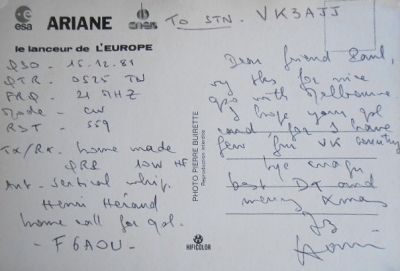 esa
ARIANE
cnes
To STN. VK3AJJ
le lanceur de L'EUROPE
QSO - 15.12.81
QTR - 0525 TU
FRQ - 21 MHZ
Mode - CW
RST - 559
Tx/Rx. home made
QRP 10W HF
Ant. vertical whip.
Henri Hérand
home call for qsl.
- F6AOU -
PHOTO PIERRE BUIRETTE
Reproduction interdite
HIFICOLOR
Dear friend
tks for nice
qso with Melbourne
I hope your qsl
card, for I have
few for VK country
bye
best DX and
merry Xmas
73
Henri